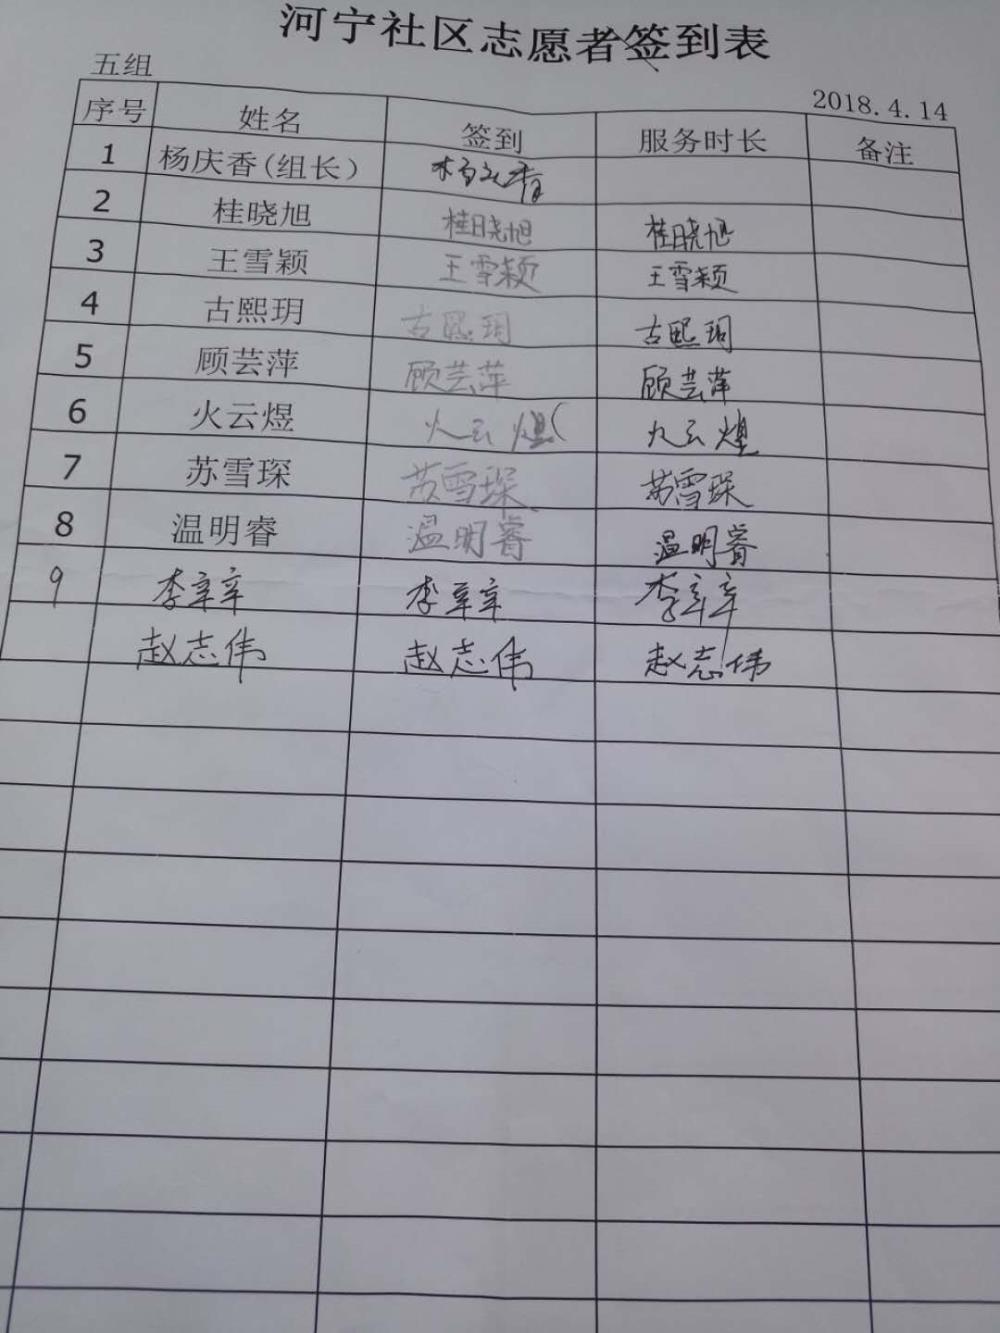 河宁社区志愿者签到表
五组
2018.4.14
序号 姓名 签到 服务时长 备注
1 杨庆香(组长) 杨庆香
2 桂晓旭 桂晓旭 桂晓旭
3 王雪颖 王雪颖 王雪颖
4 古熙玥 古熙玥 古熙玥
5 顾芸萍 顾芸萍 顾芸萍
6 火云煜 火云煜 火云煜
7 苏雪琛 苏雪琛 苏雪琛
8 温明睿 温明睿 温明睿
9 李辛辛 李辛辛 李辛辛
赵志伟 赵志伟 赵志伟